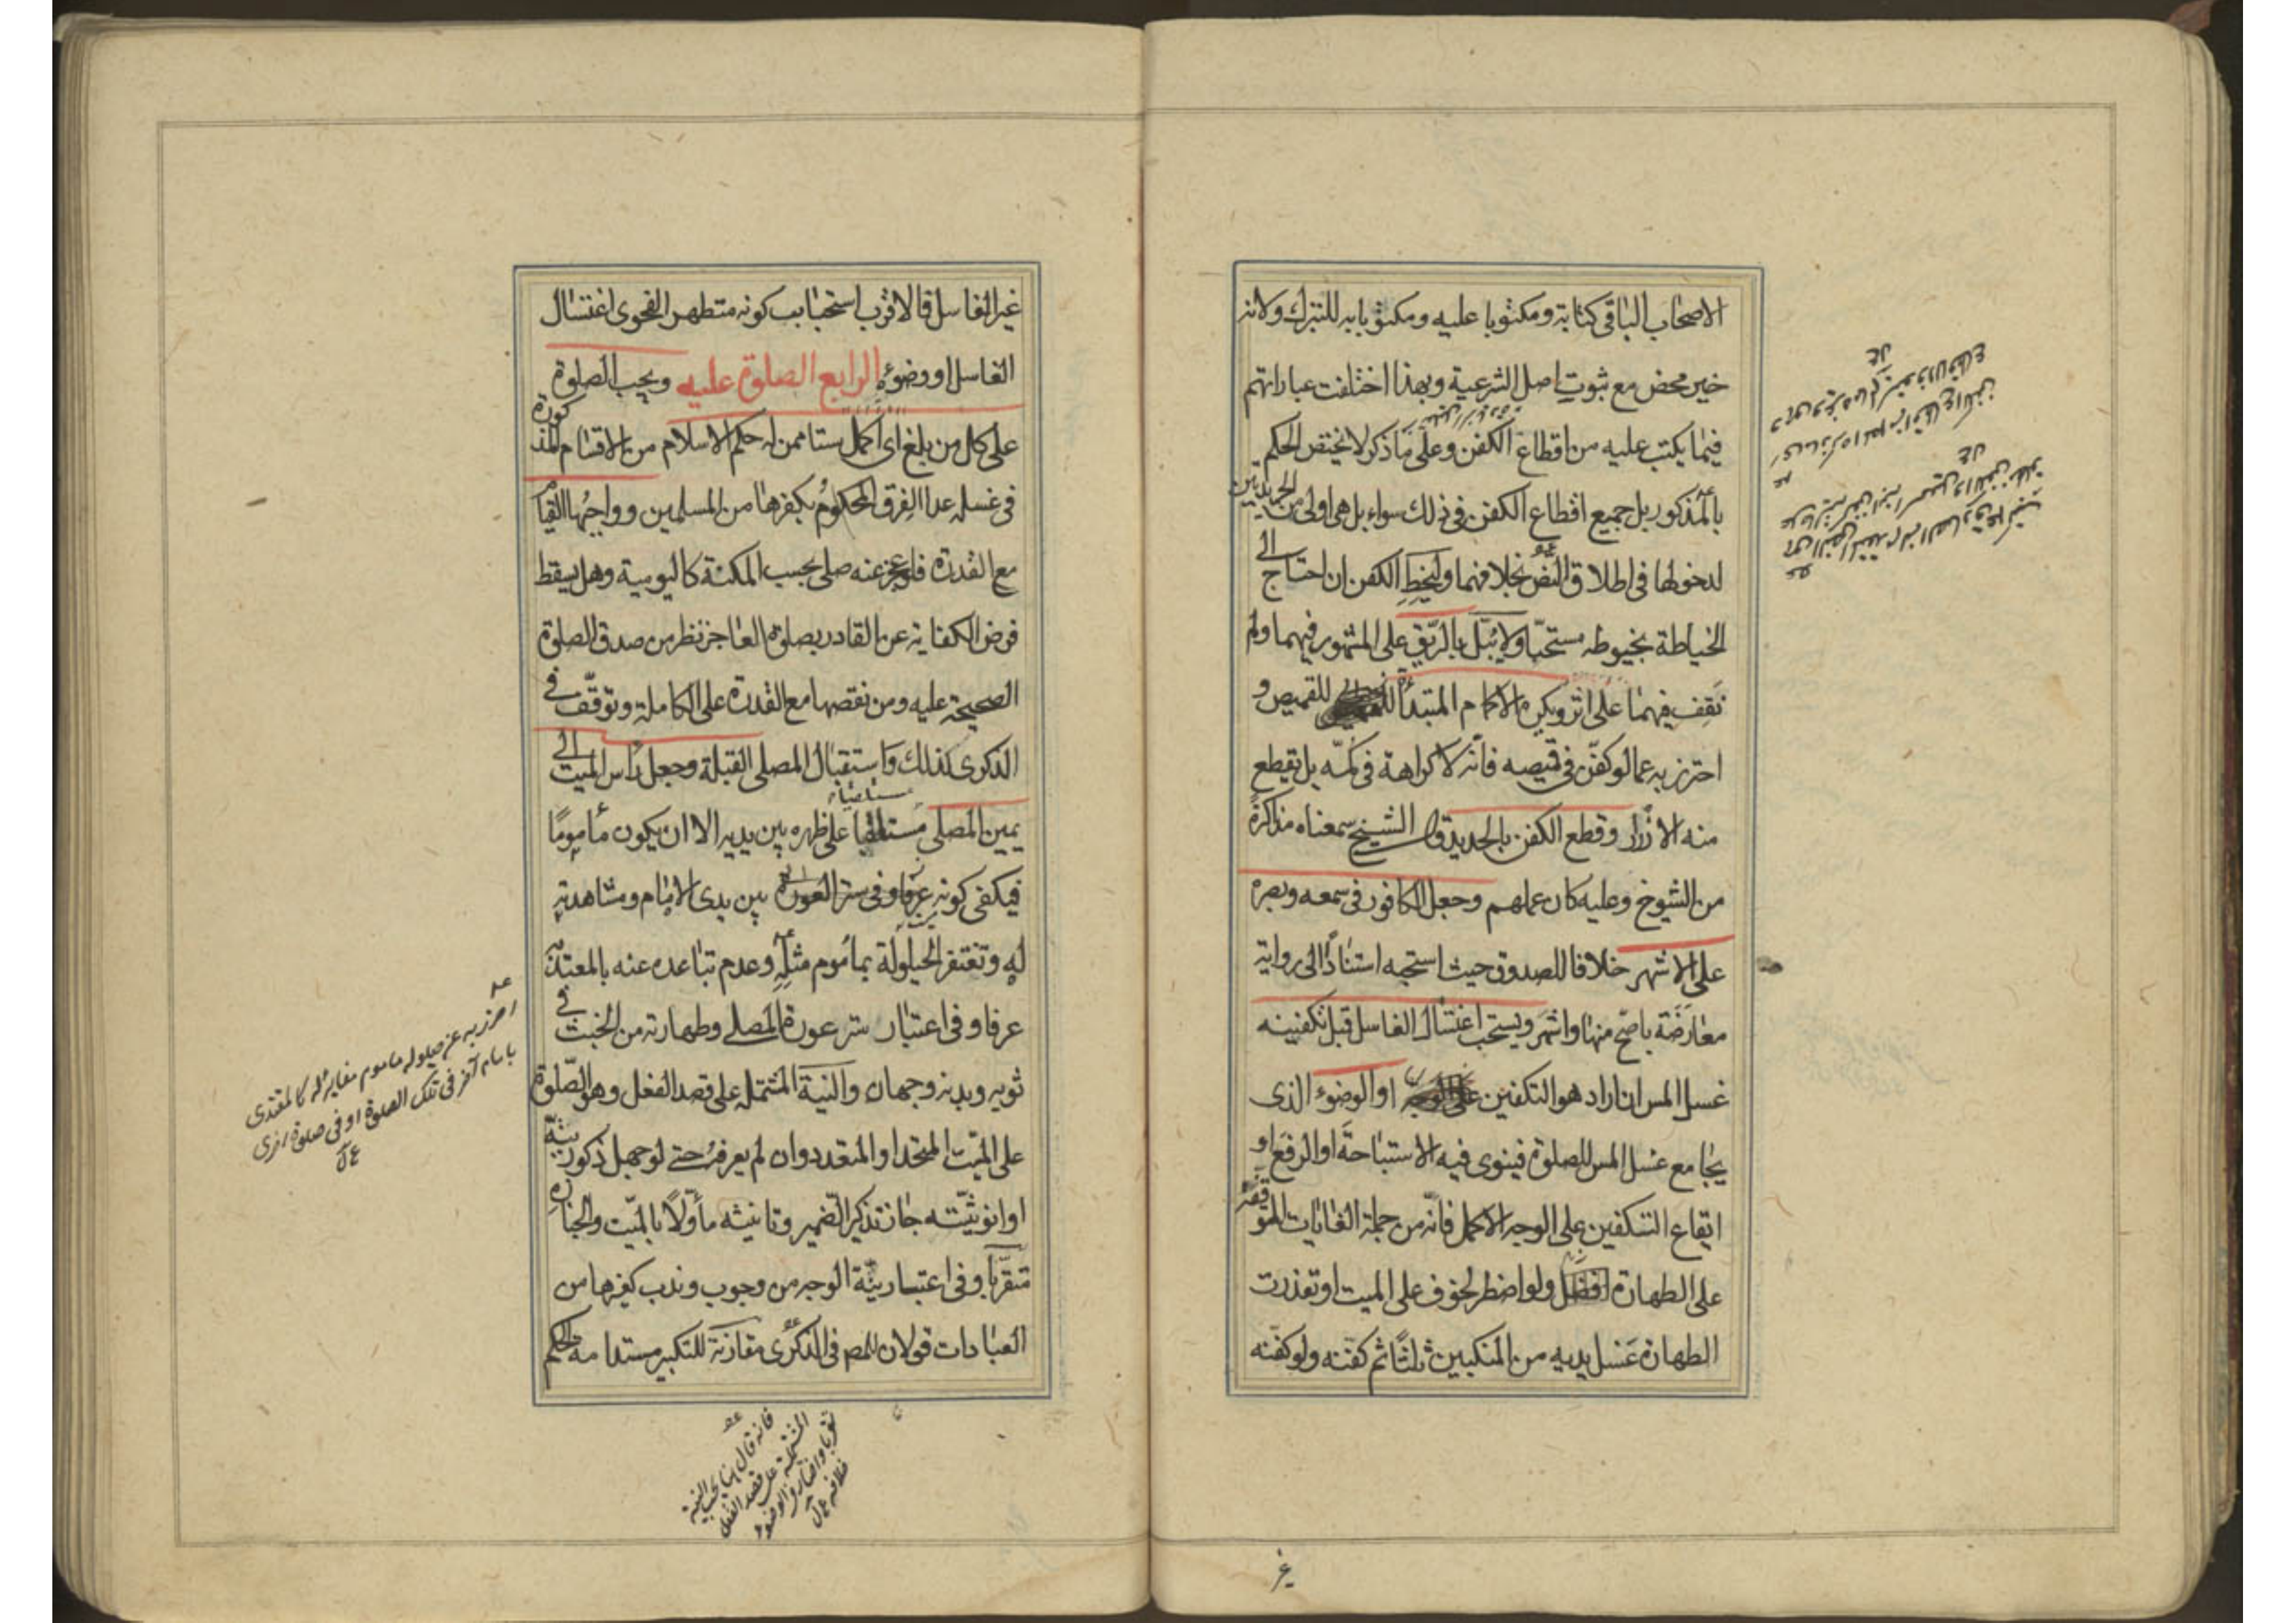 الاصحاب الباقى كتابة ومكتوبا عليه ومكتوبا به للتبرك ولانه
خير محض مع ثبوت اصل الشرعية وبهذا اختلفت عباراتهم
فيما يكتب عليه من اقطاع الكفن وعلى ما ذكر لا يختص الحكم
بالمذكور بل جميع اقطاع الكفن فى ذلك سواء بل هى اولى من الجريدتين
لدخولها فى اطلاق النص بخلافهما وليخط الكفن ان احتاج الى
الخياطة بخيوطه مستحبّا ولا يُبَلّ بالرّيق على المشهور فيهما ولم
نَقِف فيهما على اثر ويكره الاكمام المبتدأة للقميص و
احترز به عما لو كفّن فى قميصه فانّه لا كراهة فى كمّه بل تقطع
منه الازرار وقطع الكفن بالحديد قال الشيخ سمعناه مذاكرة
من الشيوخ وعليه كان عملهم وجعل الكافور فى سمعه وبصره
على الاشهر خلافا للصدوق حيث استحبه استنادًا الى رواية
معارَضَة باصحّ منها واشهَر ويستحب اغتسال الغاسل قبل تكفينه
غسل المس ان اراد هو التكفين او الوضوء الذى
يجامع غسل المس للصلوة فينوى فيه الاستباحة او الرفع او
ايقاع التكفين على الوجه الاكمل فانّه من جملة الغايات الموقفة
على الطهارة افضل ولو اضطر لخوف على الميت او تعذرت
الطهارة غسل يديه من المنكبين ثلثًا ثم كفّنه ولو كفّنه
غير الغاسل فالاقرب استحباب كونه متطهر الفحوى اغتسال
الغاسل او وضوئه الرابع الصلوة عليه ويجب الصلوة
على كل من بلغ اى اكمل ستا ممن له حكم الاسلام من الاقسام المذكورة
فى غسله عدا الفِرق المحكوم بكفرها من المسلمين وواجبُها القيام
مع القدرة فلو عجز عنه صلى بحسب المكنة كاليومية وهل يسقط
فرض الكفاية عن القادر بصلوة العاجز نظر من صدق الصلوة
الصحيحة عليه ومن نقصها مع القدرة على الكاملة وتوقّف فى
الذكرى كذلك واستقبال المصلى القبلة وجعل راس الميت الى
يمين المصلى مستلقيا على ظهره بين يديه الا ان يكون مأمومًا
فيكفى كونه بين يدى الامام ومشاهدته
له وتغتفر الحيلولة بمأموم مثلِه وعدم تباعده عنه بالمعتد به
عرفا وفى اعتبار ستر عورة المصلى وطهارته من الخبث فى
ثوبه وبدنه وجهان والنية المشتملة على قصد الفعل وهو الصّلوة
على الميّت المتحد او المتعدد وان لم يعرفه حتى لو جهل ذكوريّته
او انوثيّته جاز تذكير الضمير وتانيثه مأوّلًا بالميّت والجنازة
متقرّبا وفى اعتبار نيّة الوجه من وجوب وندب كغيرها من
العبادات قولان للمص فى الذكرى مقارنة للتكبير مستدامة الحكم
احترز به عن حيلولة ماموم مغاير له كالمقتدى
بامام آخر فى تلك الصلوة او فى صلوة اخرى
فانه قال
المشتملة على قصد الفعل
غير